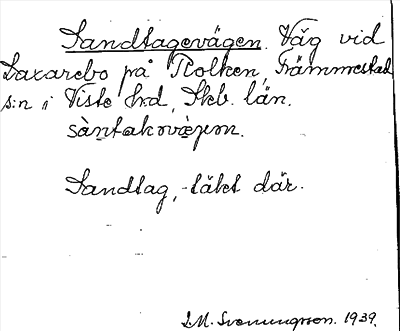 Sandtagevägen. Väg vid
Laxarebo på Rolken, Främmestad
s:n i Viste hrd, Skb. län.
sàntakɷvæ̀jǝn.
Sandtag, -täkt där.
S.M. Svenungsson. 1939.